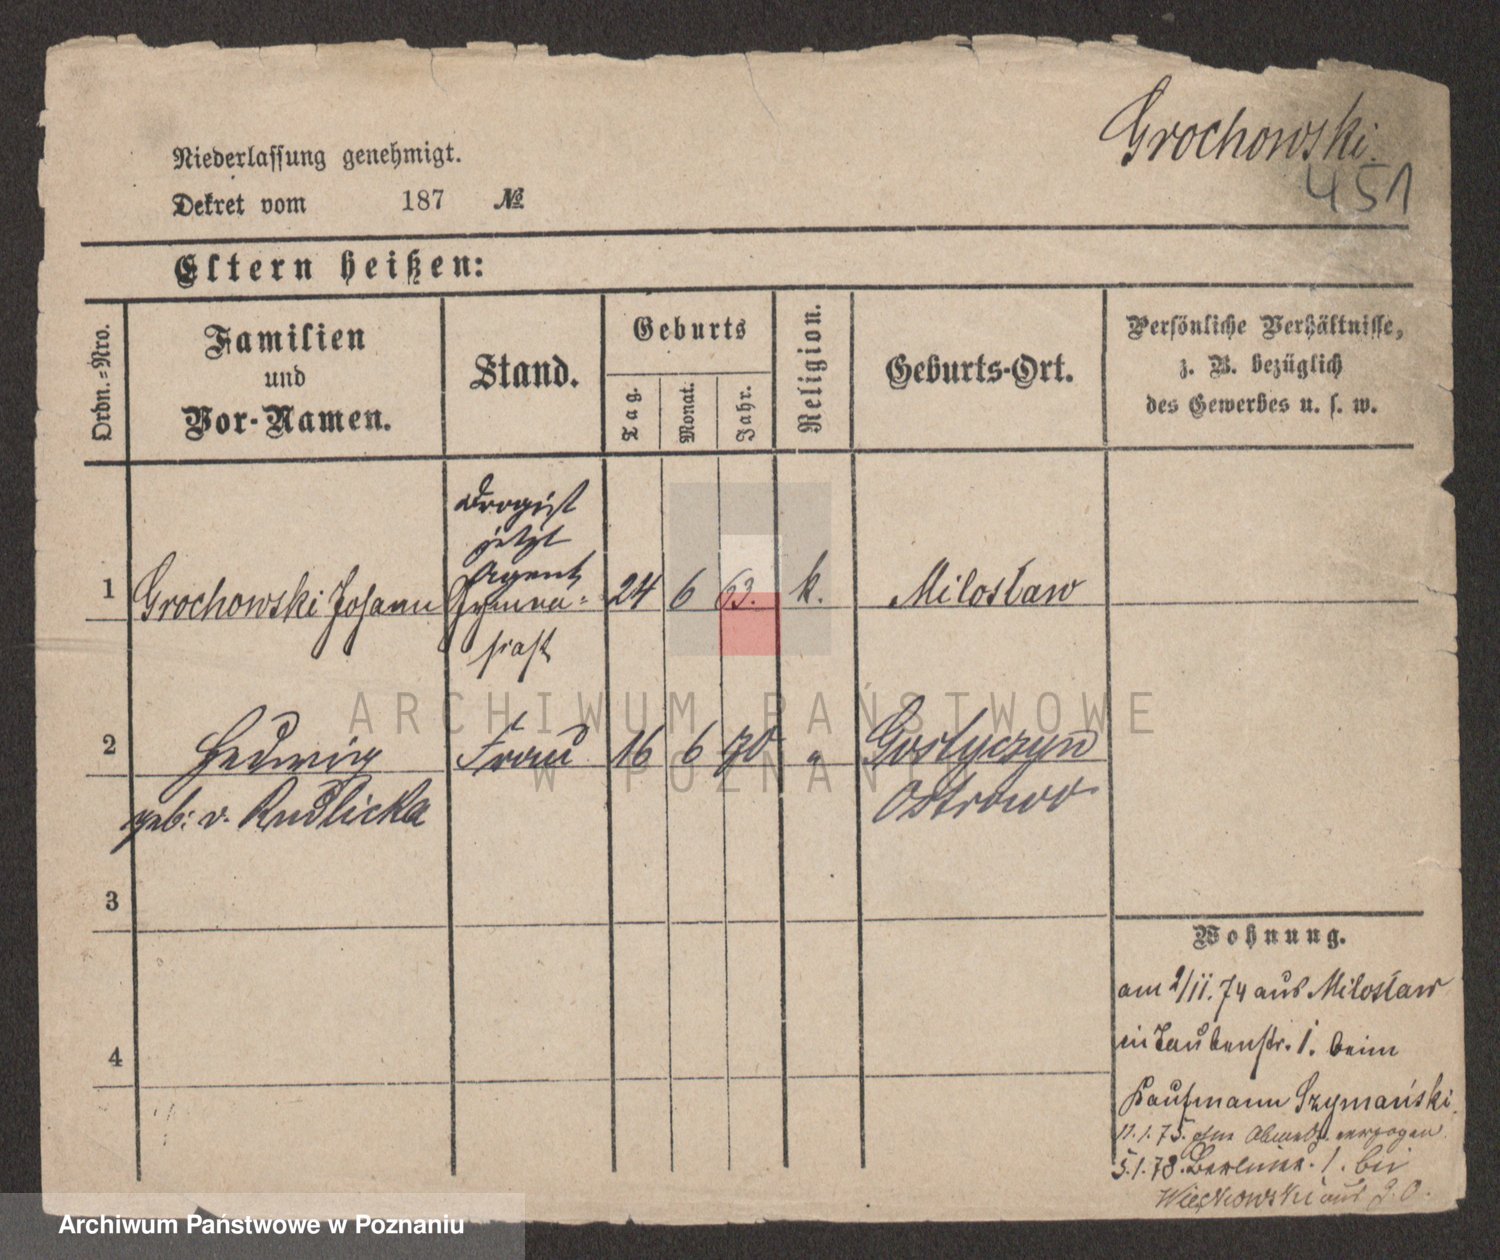 Grochowski.
451
Niederlassung genehmigt.
Dekret vom 187 №
Eltern heißen:
Ordn.-Nro.
Familien
und
Vor-Namen.
Stand.
Geburts
Tag.
Monat.
Jahr.
Religion.
Geburts-Ort.
Persönliche Verhältnisse,
z. B. bezüglich
des Gewerbes u. s. w.
Drogist
jetzt
Agent
1 Grochowski Johann Gymna- 24 6 63. k. Miłosław
siast
2 Hedwig Frau 16 6 70 " Gostyczyn
geb: v. Rudlicka Ostrowo
3
4
Wohnung.
am 2/II. 74 aus Miłosław
in Taubenstr. 1. beim
Kaufmann Szymański
11.1.75. ohne Abmeldg. verzogen
5.1.78. Berliner. 1. bei
Więckowski aus
ARCHIWUM PAŃSTWOWE
W POZNANIU
Archiwum Państwowe w Poznaniu